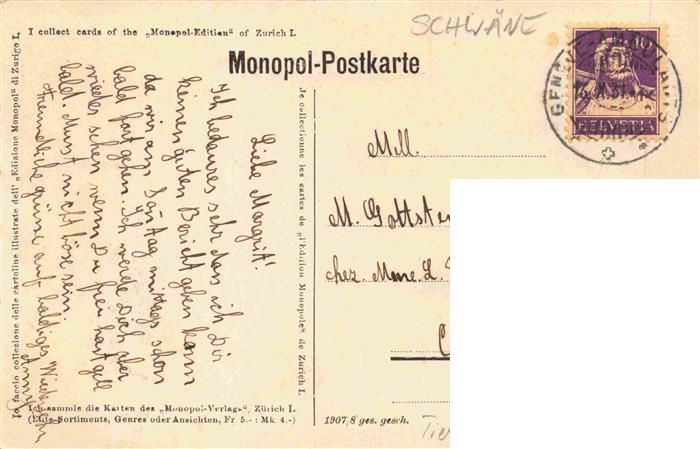 I collect cards of the „Monopol-Edition" of Zurich I.
SCHWÄNE
Monopol-Postkarte
10
HELVETIA
16.X.31
Io faccio collezione delle cartoline illustrate dell' „Edizione Monopol" di Zurigo I.
Je collectionne les cartes de „l'Edition Monopole" de Zurich I.
Liebe Margrit!
Ich bedaure sehr das ich Dir
keinen guten Bericht geben kann
da wir am Sonntag mittags schon
bald fort gehen. Ich werde Dich aber
wieder sehen wenn Du frei hast gell
bald. Musst nicht böse sein.
Freundliche grüsse auf baldiges Wiedersehn
Mll.
M. Gottste
chez Mme L
Ich sammle die Karten des „Monopol-Verlags", Zürich I.
(Elite-Sortiments, Genres oder Ansichten, Fr 5.- : Mk 4.-)
1907/8 ges. gesch.
Tier